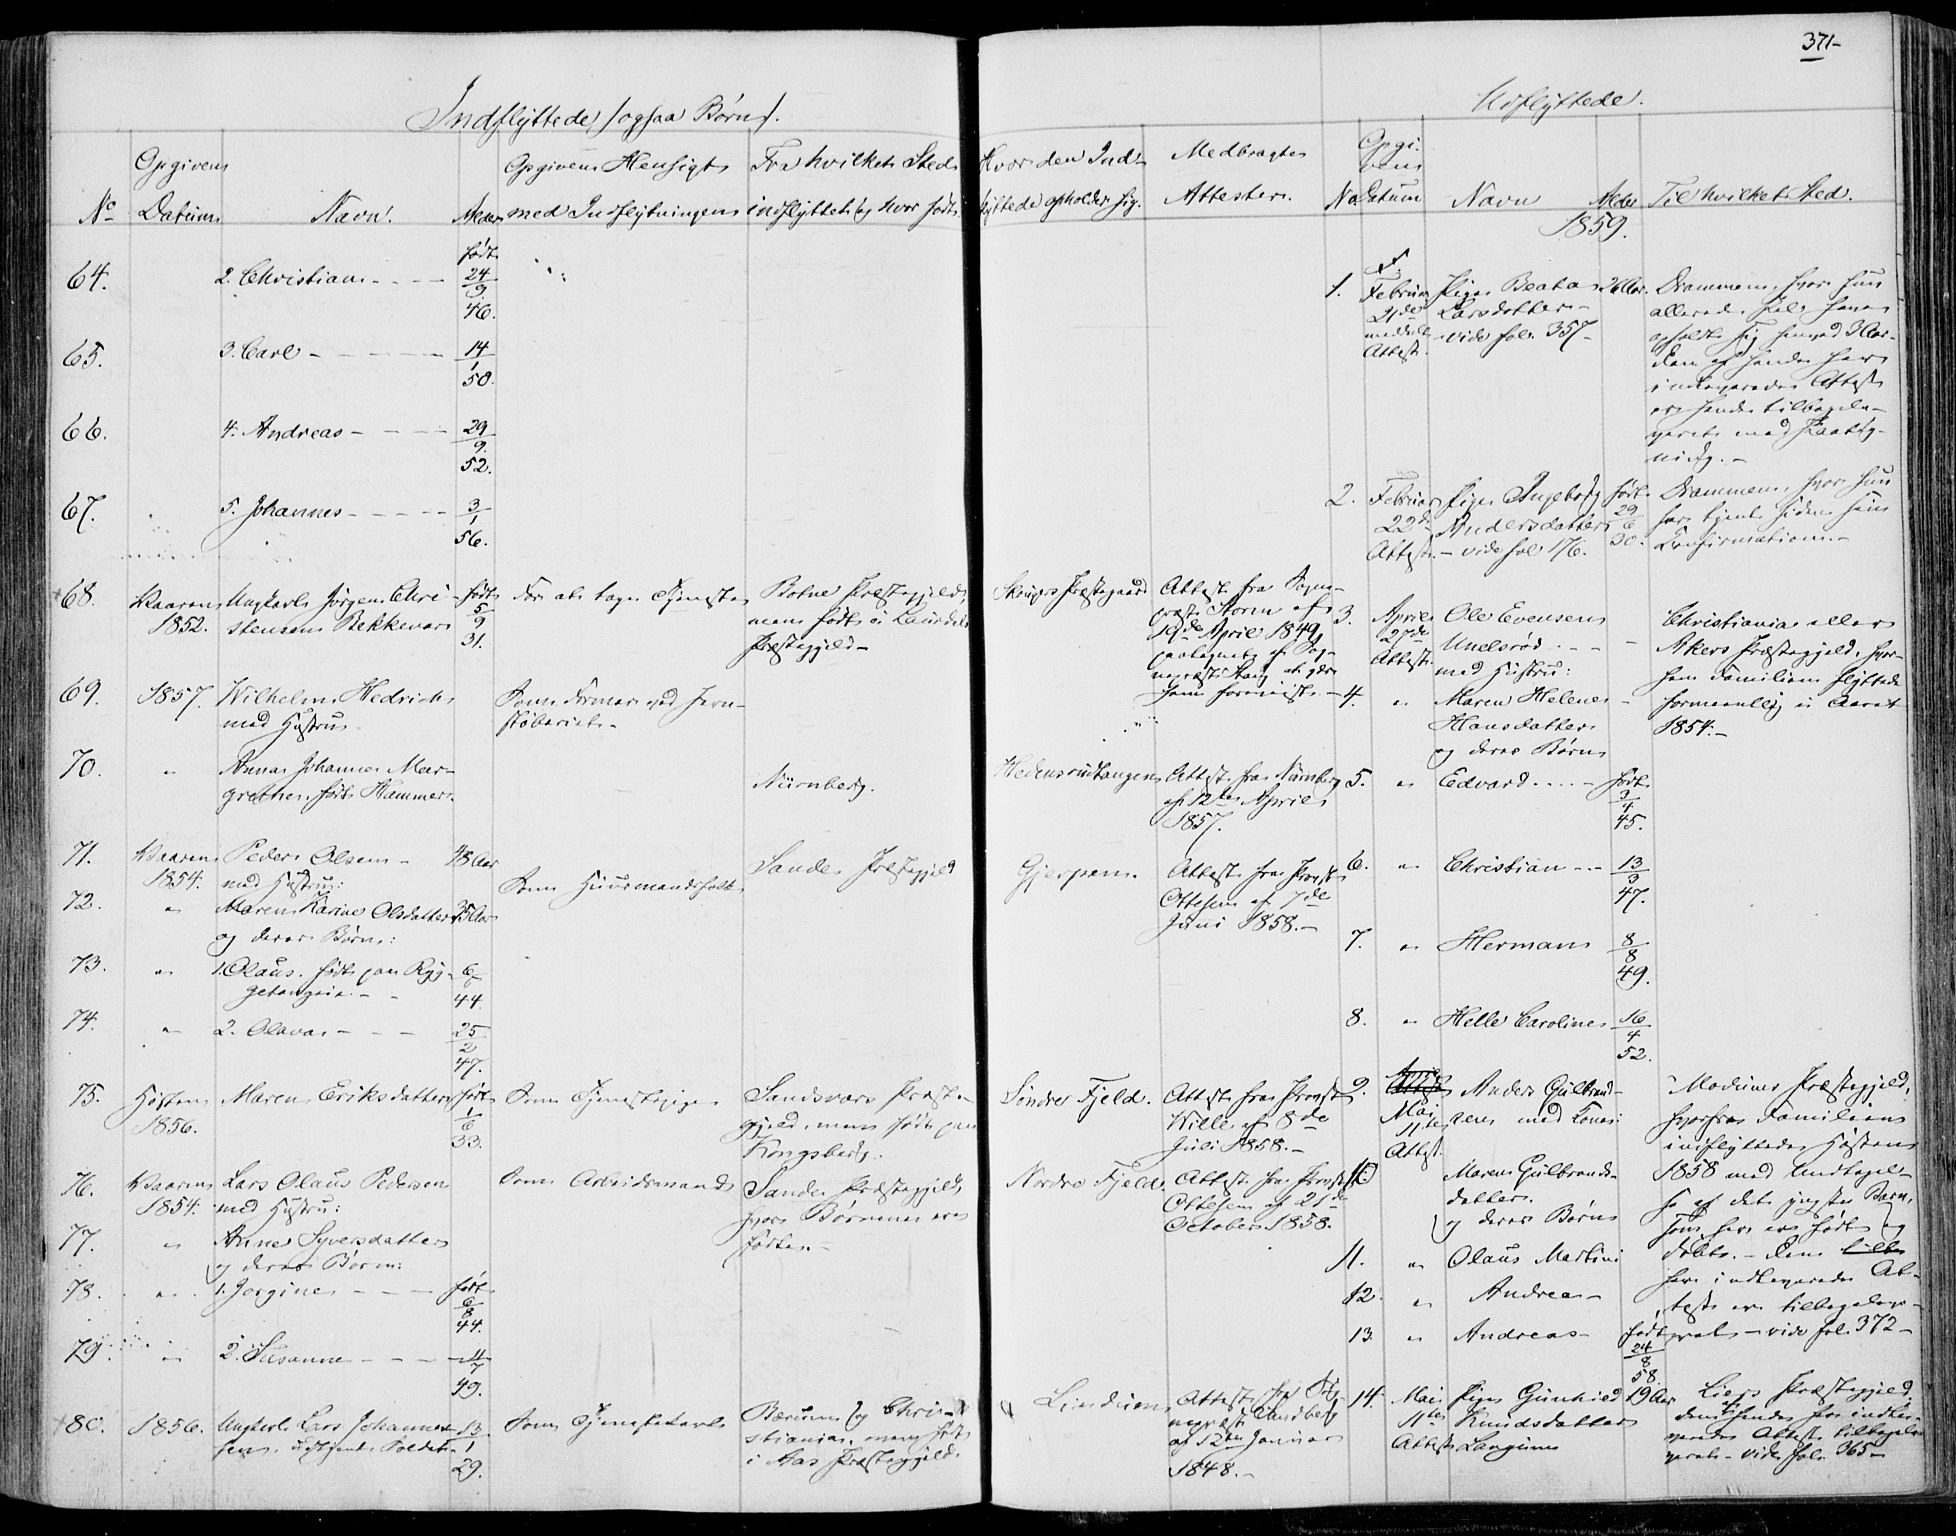 371-
Indflyttede (ogsaa Børn).
Opgivens
Opgivens Hensigt
Fra hvilket Sted
No
Datum
Navn.
Alder
med Indflytningen
indflyttet og hvor født.
født
64.
2. Christian
24
9
46.
65.
3. Carl
14
1
50.
66.
4. Andreas
29
9
52.
67.
5. Johannes
3
1
56.
68.
Vaaren
1852.
Ungkarl Jørgen Chri-
stensen Bekkevar
født
5
9
31.
For at tage Tjeneste
Botne Præstegjeld,
men født i Laurdal
Præstegjeld
69.
1857.
Wilhelm Hedrich
med Hustru
Som Former ved Jern-
støberiet
70.
"
Anna Johanne Mar-
grethe, født Hammer.
Nürnberg.
71.
Vaaren
1854.
Peder Olsen
med Hustru:
48 Aar
Som Huusmandsfolk
Sande Præstegjeld
72.
"
Maren Karine Olsdatter
og deres Børn:
35 Aar
73.
"
1. Olaus. født paa Ryg-
getangen
44.
74.
"
2. Olava
25
2
47.
75.
Høsten
1856.
Maren Eriksdatter
født
1
6
33.
Som Tjenestepige
Sandsvær Præste-
gjeld, men født paa
Kongsberg.
76.
Vaaren
1854.
Lars Olaus Pedersen
med Hustru:
Som Arbeidsmand
Sande Præstegjeld,
hvor Børnene ere
fødte.
77.
"
Anne Syversdatter
og deres Børn:
78.
"
1. Jorgine
født
6
8
44.
79.
"
2. Susanne
11
7
49.
80.
1856.
Ungkarl Lars Johannes-
sen, udtjent Soldat
13
1
29.
Som Tjenestekarl
Bærum og Chri-
stiania, men født
i Aas Præstegjeld.
Udflyttede.
Hvor den Ind-
flyttede opholder sig.
Medbragte
Attester.
No
Opgi-
vens
Datum
Navn
Alder
Til hvilket Sted.
1859.
1.
Februar
21de
meddelt
Attest.
Pige Beata
Larsdatter
vide fol. 357
26 Aar.
Drammen, hvor hun
allerede skal have
opholdt sig henved 3 Aar.
Den af hende her
indleverede Attest
er hende tilbagele-
veret med Paateg-
ning.
2.
Februar
22de
Attest.
Pige Ingeborg
Andersdatter
vide fol 176.
født
29
6
30.
Drammen, hvor hun
har tjent siden sin
Confirmation.
Skouger Præstegaard
Attest fra Sogne-
præst Storm af
19de April 1849,
paategnet af Sog-
nepræst
3.
April
27de
Attest.
Ole Evensen
Unelsrød
med Hustru:
Christiania eller
Akers Præstegjeld, hvor-
hen Familien flyttede
formeentlig i Aaret
1854.
4.
"
Maren Helene
Hansdatter
og deres Børn
Hedensrudtangen
Attest fra Nürnberg
af 12te April
1857.
5.
"
Edvard
født
3
4
45.
Gjerpen.
Attest fra Provst
Ottesen af 7de
Juni 1858.
6.
"
Christian
13
3
47.
7.
"
Herman
8
8
49.
8.
"
Helle Caroline
16
4
52.
Søndre Fjeld.
Attest fra Provst
Wille af 8de
Juli 1858.
9.
Mai
11te
Attest.
Anders Gulbrand-
sen med Kone:
Modums Præstegjeld,
hvorfra Familien
indflyttede Høsten
1858 med Undtagel-
se af det yngste Barn,
som her er født og
døbt. Den
her indleverede At-
test er tilbageleve-
ret vide fol. 372
Nordre Fjeld
Attest fra Provst
Ottesen af 21de
October 1858.
10.
Maren Gulbrands-
datter.
og deres Børn
11.
"
Olaus Martin
12.
"
Andrea
13.
"
Andreas
født
24
8
58.
Lindum
Attest fra Sog-
nepræst Sandberg
af 12te Januar
1848.
14.
Mai
11te
Attest
Pige Gunhild
Knudsdatter
Langum
19 Aar
Liers Præstegjeld.
den af hende her indle-
verede Attest tilbagele-
veret vide fol. 365